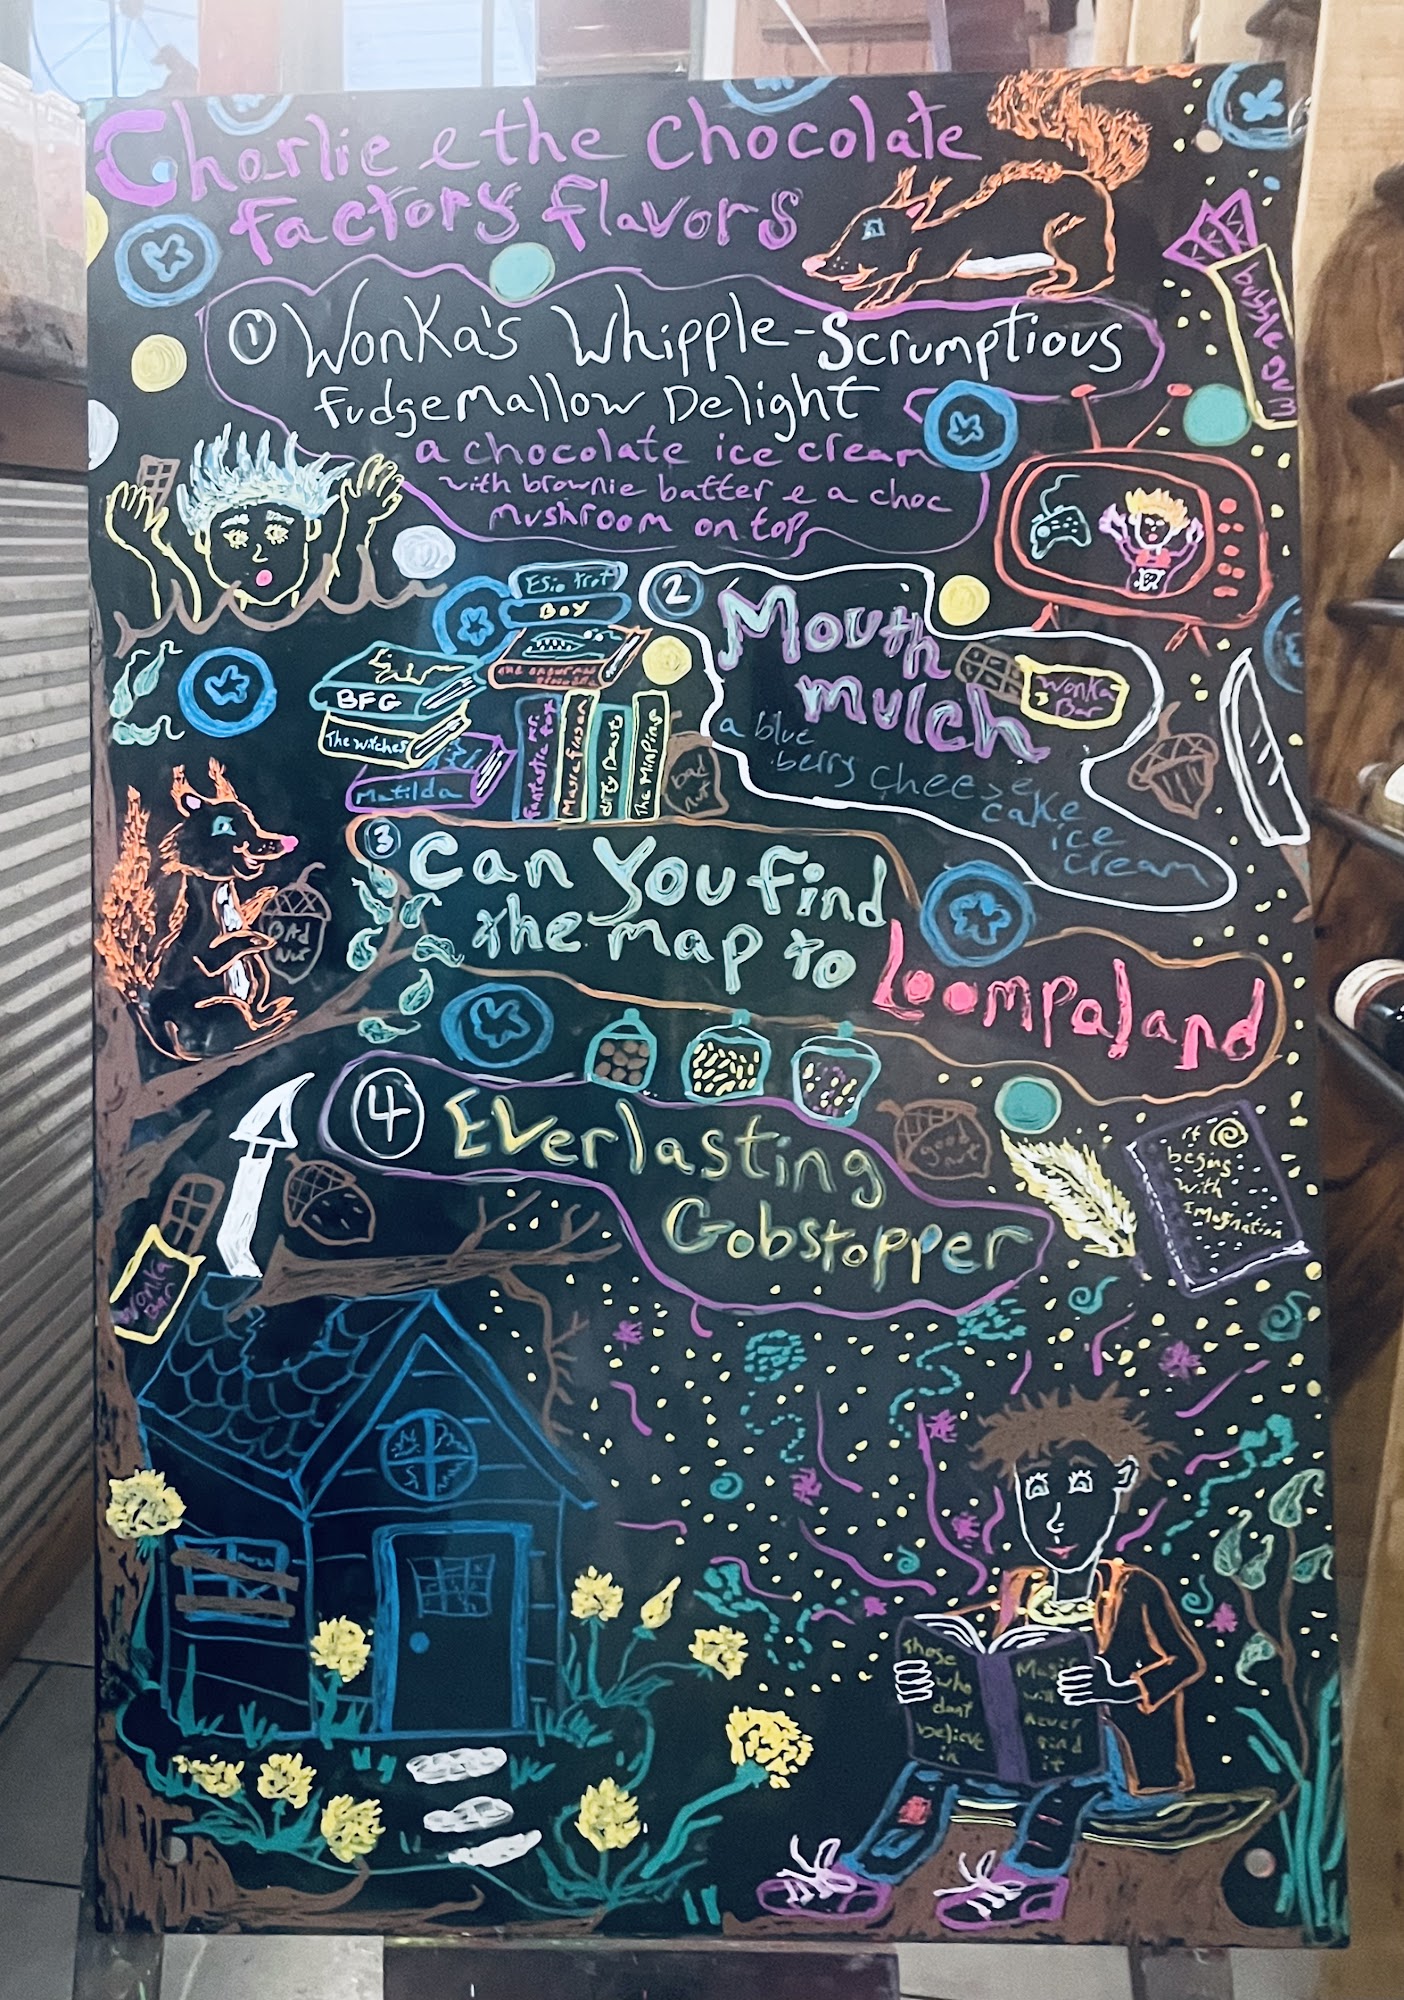 Charlie & the Chocolate
factory flavors
bubble gum
① Wonka's Whipple-Scrumptious
fudgemallow Delight
a chocolate ice cream
with brownie batter & a choc
mushroom on top
Esio trot
BOY
the enormous
BFG
The witches
Matilda
fantastic mr fox
Magic finger
Dirty Beasts
The Minpins
bad
nut
② Mouth
mulch
a blue
berry cheese
cake
ice
cream
Wonka
Bar
③ Can you find
the map to Loompaland
BAd
Nut
④ Everlasting
Gobstopper
good
nut
it
begins
with
Imagination
Wonka
Bar
Those
who
dont
believe
in
Magic
will
never
find
it